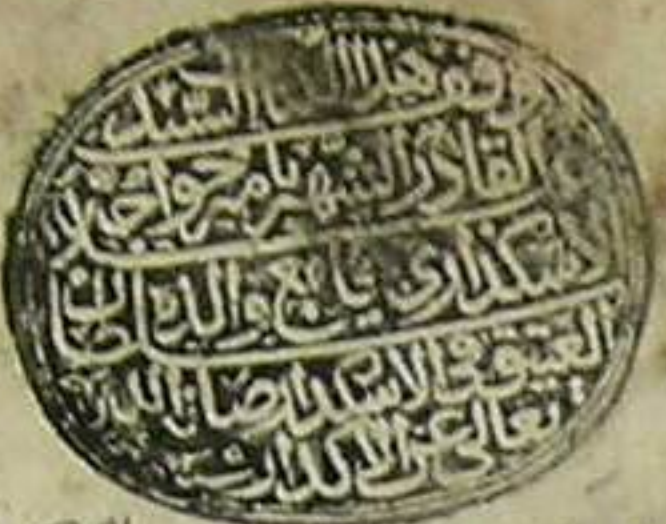 وقف هذا الكتاب السيد
القادر الشهير بامير خواجه
الاسكداری بجامع والده سلطان
العتيق فی الاسكدار صانها الله
تعالی عن الاکدار